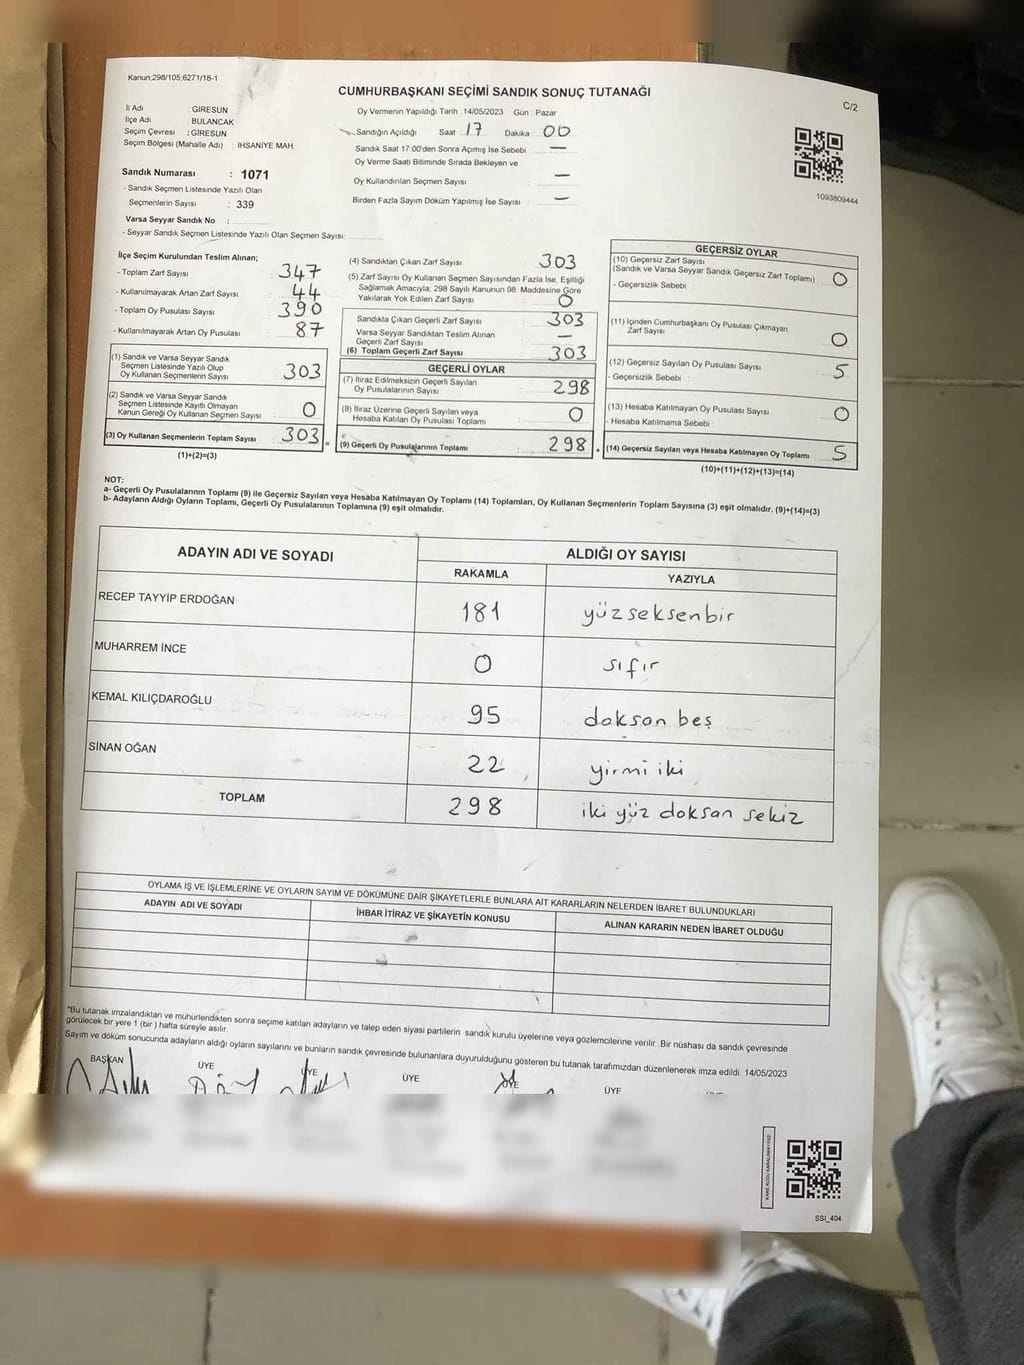 Kanun;298/105;6271/18-1
CUMHURBAŞKANI SEÇİMİ SANDIK SONUÇ TUTANAĞI
C/2
İl Adı : GİRESUN
İlçe Adı : BULANCAK
Seçim Çevresi : GİRESUN
Seçim Bölgesi (Mahalle Adı) : İHSANİYE MAH.
Oy Vermenin Yapıldığı Tarih : 14/05/2023 Gün : Pazar
Sandığın Açıldığı Saat 17 Dakika 00
Sandık Saat 17:00'den Sonra Açımış İse Sebebi : —
Oy Verme Saati Bitiminde Sırada Bekleyen ve
Oy Kullandırılan Seçmen Sayısı : —
Birden Fazla Sayım Döküm Yapılmış İse Sayısı : —
1093809444
Sandık Numarası : 1071
- Sandık Seçmen Listesinde Yazılı Olan
Seçmenlerin Sayısı : 339
Varsa Seyyar Sandık No :
- Seyyar Sandık Seçmen Listesinde Yazılı Olan Seçmen Sayısı:
İlçe Seçim Kurulundan Teslim Alınan;
- Toplam Zarf Sayısı : 347
- Kullanılmayarak Artan Zarf Sayısı : 44
- Toplam Oy Pusulası Sayısı : 390
- Kullanılmayarak Artan Oy Pusulası : 87
(1) Sandık ve Varsa Seyyar Sandık
Seçmen Listesinde Yazılı Olup
Oy Kullanan Seçmenlerin Sayısı : 303
(2) Sandık ve Varsa Seyyar Sandık
Seçmen Listesinde Kayıtlı Olmayan
Kanun Gereği Oy Kullanan Seçmen Sayısı : 0
(3) Oy Kullanan Seçmenlerin Toplam Sayısı : 303
(1)+(2)=(3)
(4) Sandıktan Çıkan Zarf Sayısı : 303
(5) Zarf Sayısı Oy Kullanan Seçmen Sayısından Fazla İse, Eşitliği
Sağlamak Amacıyla; 298 Sayılı Kanunun 98. Maddesine Göre
Yakılarak Yok Edilen Zarf Sayısı : 0
Sandıkta Çıkan Geçerli Zarf Sayısı : 303
Varsa Seyyar Sandıktan Teslim Alınan
Geçerli Zarf Sayısı : —
(6) Toplam Geçerli Zarf Sayısı : 303
GEÇERLİ OYLAR
(7) İtiraz Edilmeksizin Geçerli Sayılan
Oy Pusulalarının Sayısı : 298
(8) İtiraz Üzerine Geçerli Sayılan veya
Hesaba Katılan Oy Pusulası Toplamı : 0
(9) Geçerli Oy Pusulalarının Toplamı : 298
GEÇERSİZ OYLAR
(10) Geçersiz Zarf Sayısı
(Sandık ve Varsa Seyyar Sandık Geçersiz Zarf Toplamı) : 0
- Geçersizlik Sebebi :
(11) İçinden Cumhurbaşkanı Oy Pusulası Çıkmayan
Zarf Sayısı : 0
(12) Geçersiz Sayılan Oy Pusulası Sayısı : 5
- Geçersizlik Sebebi :
(13) Hesaba Katılmayan Oy Pusulası Sayısı : 0
- Hesaba Katılmama Sebebi :
(14) Geçersiz Sayılan veya Hesaba Katılmayan Oy Toplamı : 5
(10)+(11)+(12)+(13)=(14)
NOT:
a- Geçerli Oy Pusulalarının Toplamı (9) ile Geçersiz Sayılan veya Hesaba Katılmayan Oy Toplamı (14) Toplamları, Oy Kullanan Seçmenlerin Toplam Sayısına (3) eşit olmalıdır. (9)+(14)=(3)
b- Adayların Aldığı Oyların Toplamı, Geçerli Oy Pusulalarının Toplamına (9) eşit olmalıdır.
ADAYIN ADI VE SOYADI ALDIĞI OY SAYISI
RAKAMLA YAZIYLA
RECEP TAYYİP ERDOĞAN 181 yüzseksenbir
MUHARREM İNCE 0 sıfır
KEMAL KILIÇDAROĞLU 95 doksan beş
SİNAN OĞAN 22 yirmi iki
TOPLAM 298 iki yüz doksan sekiz
OYLAMA İŞ VE İŞLEMLERİNE VE OYLARIN SAYIM VE DÖKÜMÜNE DAİR ŞİKAYETLERLE BUNLARA AİT KARARLARIN NELERDEN İBARET BULUNDUKLARI
ADAYIN ADI VE SOYADI İHBAR İTİRAZ VE ŞİKAYETİN KONUSU ALINAN KARARIN NEDEN İBARET OLDUĞU
"Bu tutanak imzalandıktan ve mühürlendikten sonra seçime katılan adayların ve talep eden siyasi partilerin sandık kurulu üyelerine veya gözlemcilerine verilir .Bir nüshası da sandık çevresinde
görülecek bir yere 1 (bir ) hafta süreyle asılır.
Sayım ve döküm sonucunda adayların aldığı oyların sayılarını ve bunların sandık çevresinde bulunanlara duyurulduğunu gösteren bu tutanak tarafımızdan düzenlenerek imza edildi. 14/05/2023
BAŞKAN ÜYE ÜYE ÜYE ÜYE ÜYE
KARE KODU KARALAMAYINIZ!
SSI_404